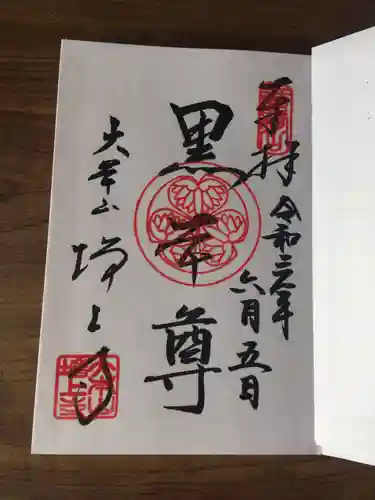 奉拝
令和三年
六月五日
黒本尊
大本山
増上寺